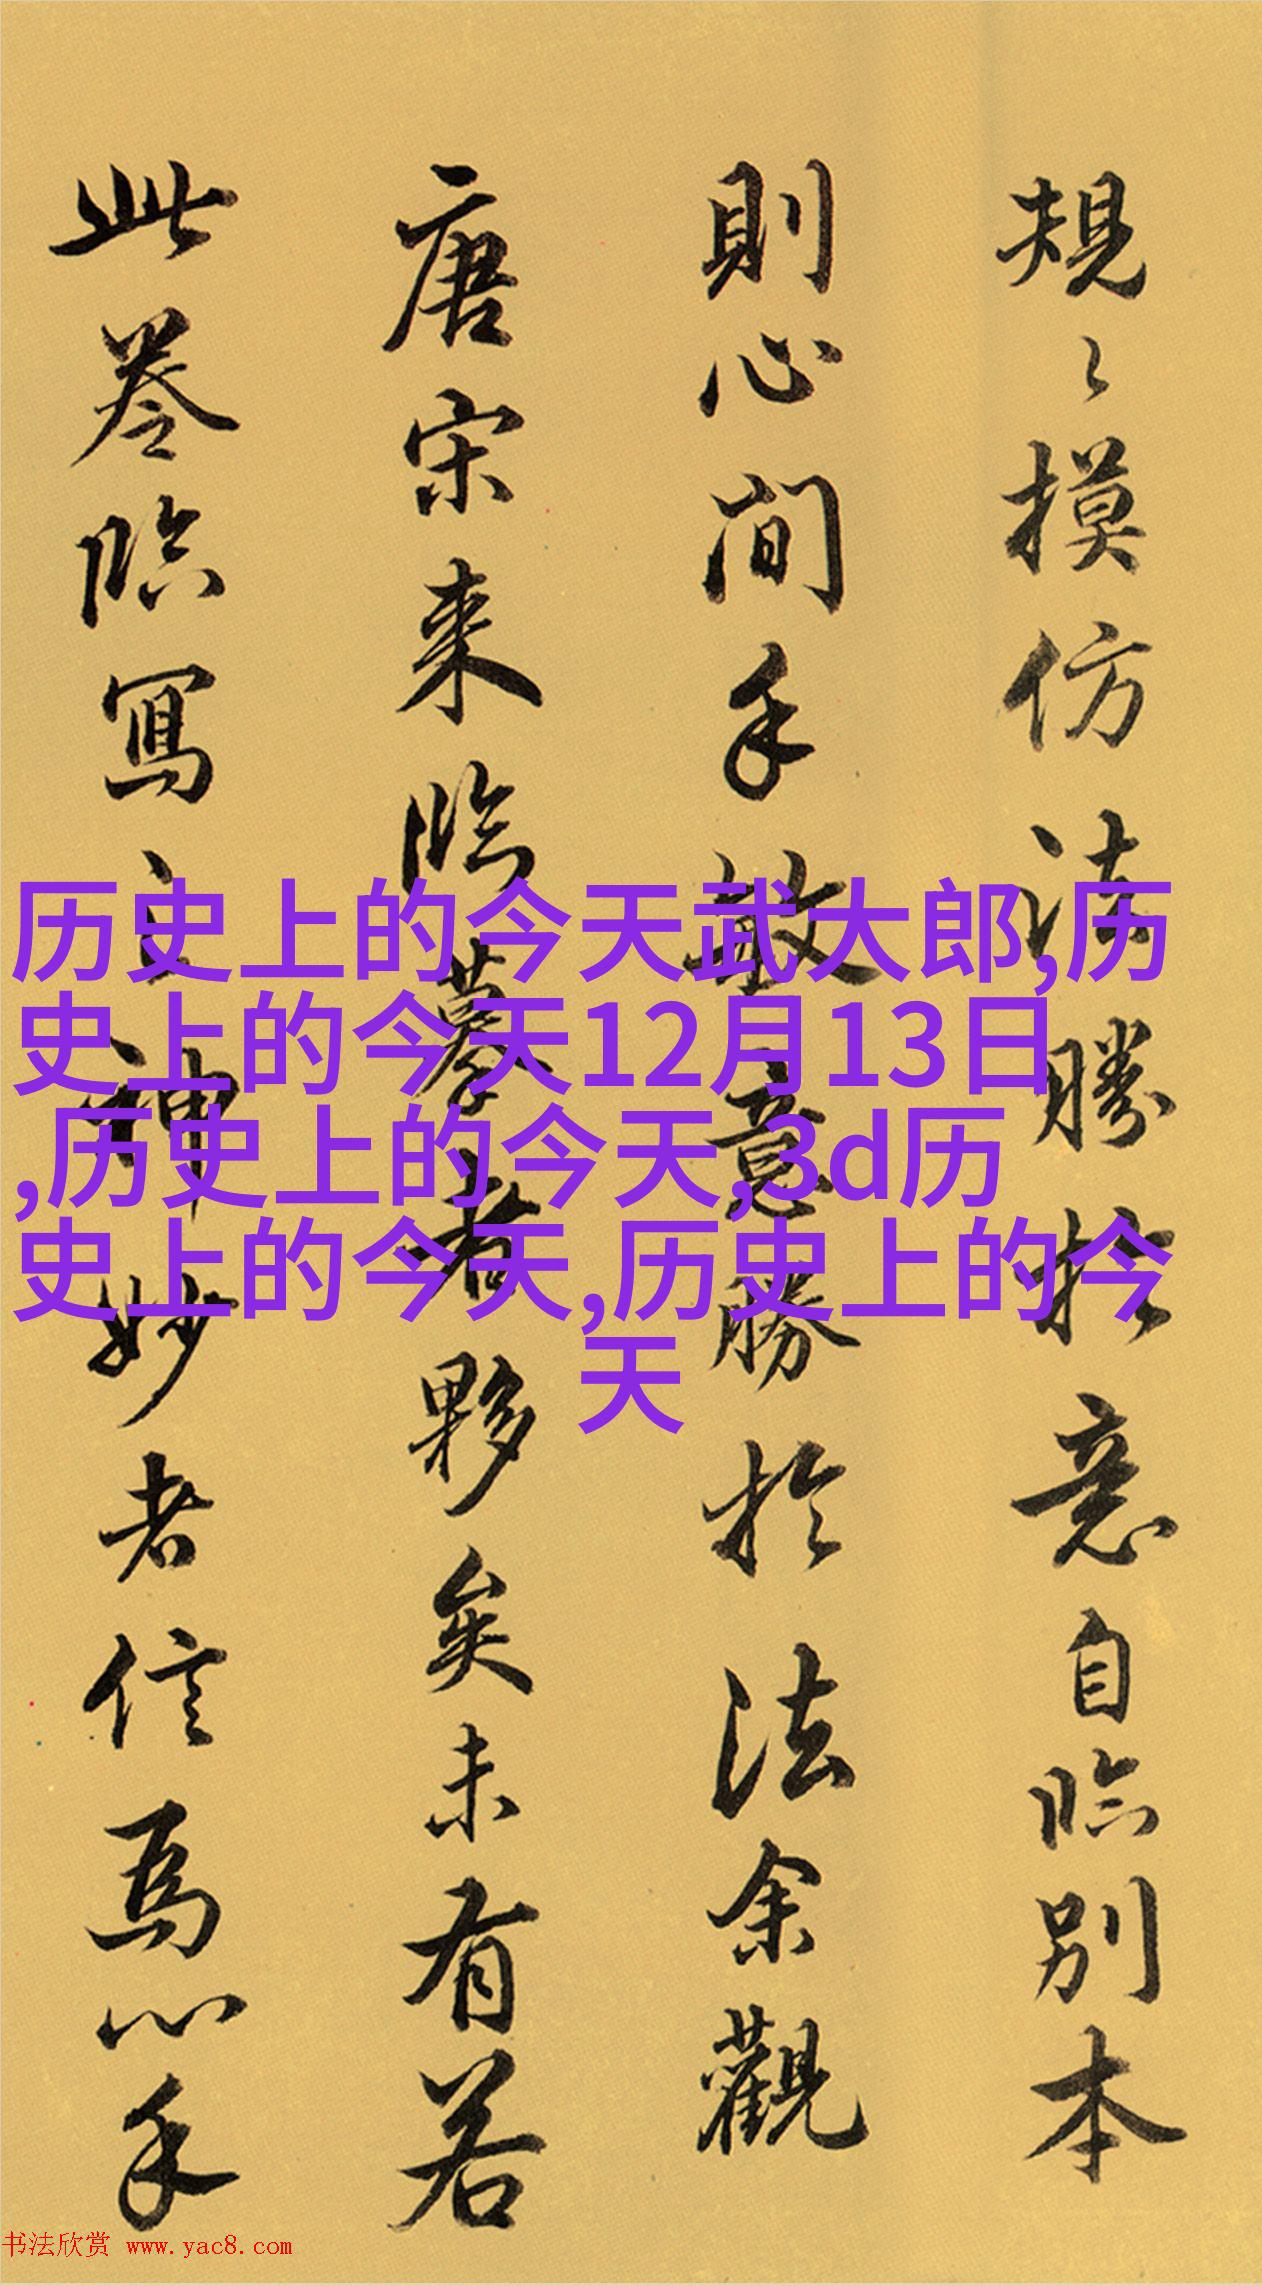 規〻摸仿法勝於意自臨別本
則心閒手敏意勝於法余觀
唐宋来臨摹者夥矣未有若
此卷臨寫之神妙者信爲心手
历史上的今天武大郎,历
史上的今天12月13日
,历史上的今天,3d历
史上的今天,历史上的今
天
书法欣赏 www.yac8.com